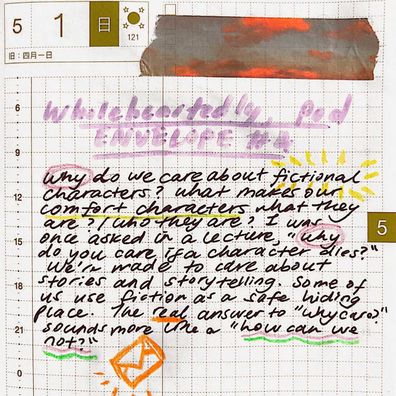 5 1 日
121
旧:四月一日
Wholeheartedly, Pod
ENVELOPE #4
6
9
12
15
18
21
0
5
Why do we care about fictional
characters? What makes our
comfort characters what they
are? / who they are? I was
once asked in a lecture, "why
do you care if a character dies?"
We're made to care about
stories and storytelling. Some of
us use fiction as a safe hiding
place. The real answer to "why care?"
sounds more like a "how can we
not?"